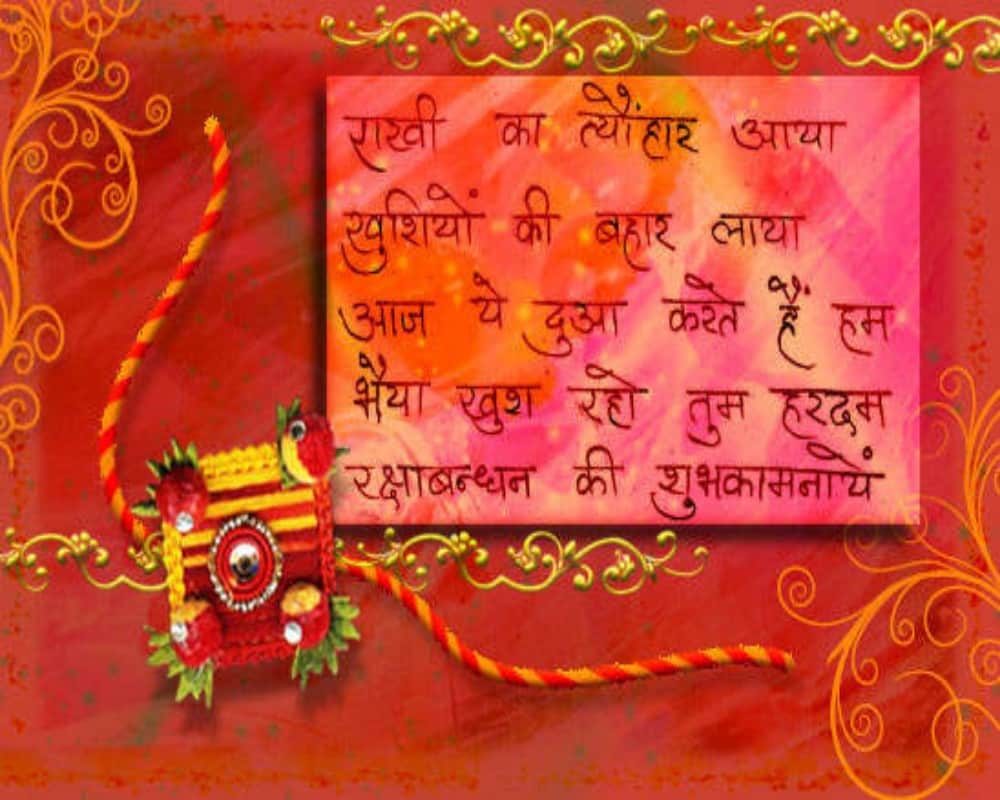 राखी का त्यौंहार आया
खुशियों की बहार लाया
आज ये दुआ करते हैं हम
भैया खुश रहो तुम हरदम
रक्षाबन्धन की शुभकामनायें